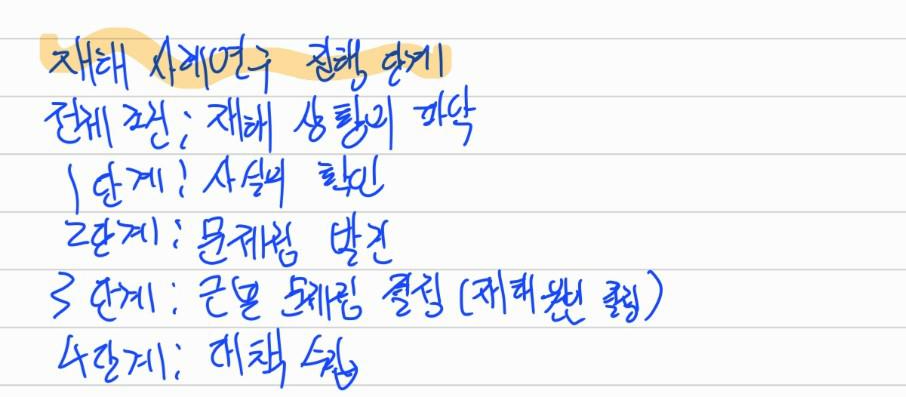 재해 사례연구 진행 단계
전제 조건; 재해 상황의 파악
1단계: 사실의 확인
2단계: 문제점 발견
3단계: 근본 문제점 결정 (재해 원인 결정)
4단계: 대책 수립